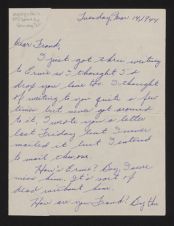 Tuesday Mar. 14, 1944
Dear Frend,
I just got thru writing
to Ernie so I thought I'd
drop you line too. I thought
of writing to you quite a few
times but never got around
to it, I wrote you a letter
last Friday but I never
mailed it but I intend
to mail this one.
How's Ernie? Boy I sure
miss him. It's sort of
dead without him.
How are you Frend? Boy the